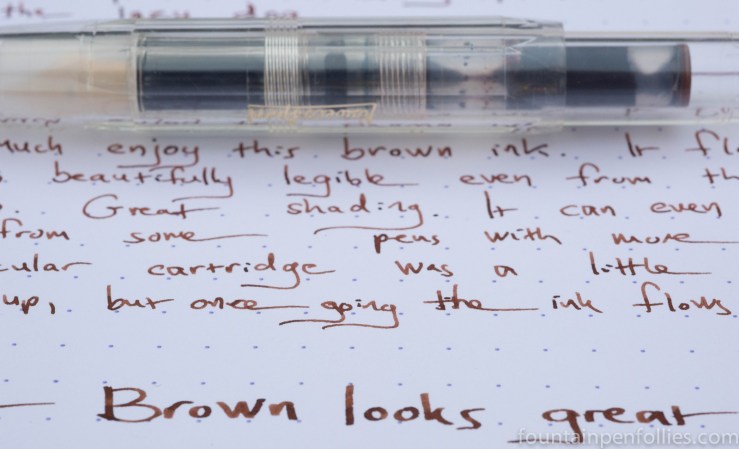 the lazy dog
much enjoy this brown ink. It fl
beautifully legible even from th
Great shading. It can even
from some pens with more
cular cartridge was a little
up, but once going the ink flows
Brown looks great
fountainpenfollies.com